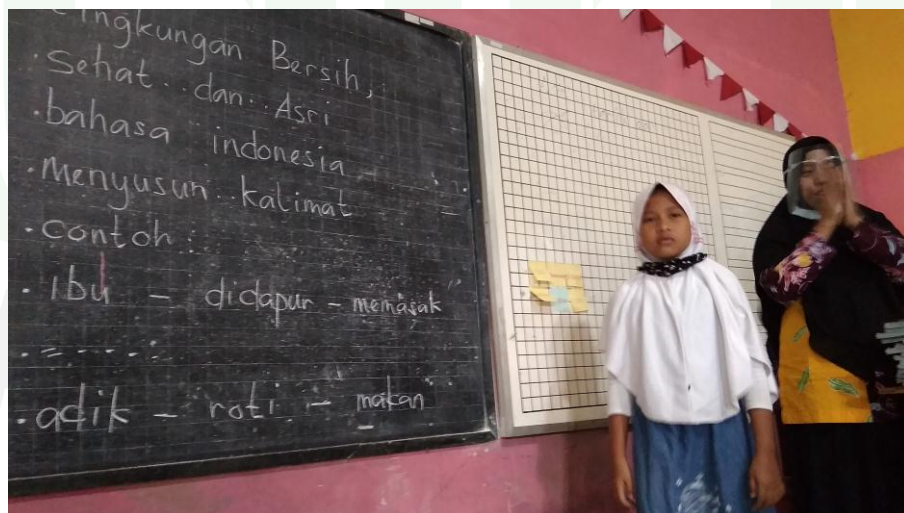 Lingkungan Bersih,
. Sehat . . dan . Asri
. bahasa indonesia
. Menyusun . kalimat
. contoh :
. Ibu – didapur – memasak
. = - - - - .
. adik – roti – makan